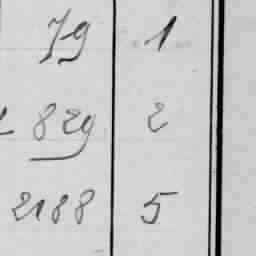 79 1
829 2
2188 5